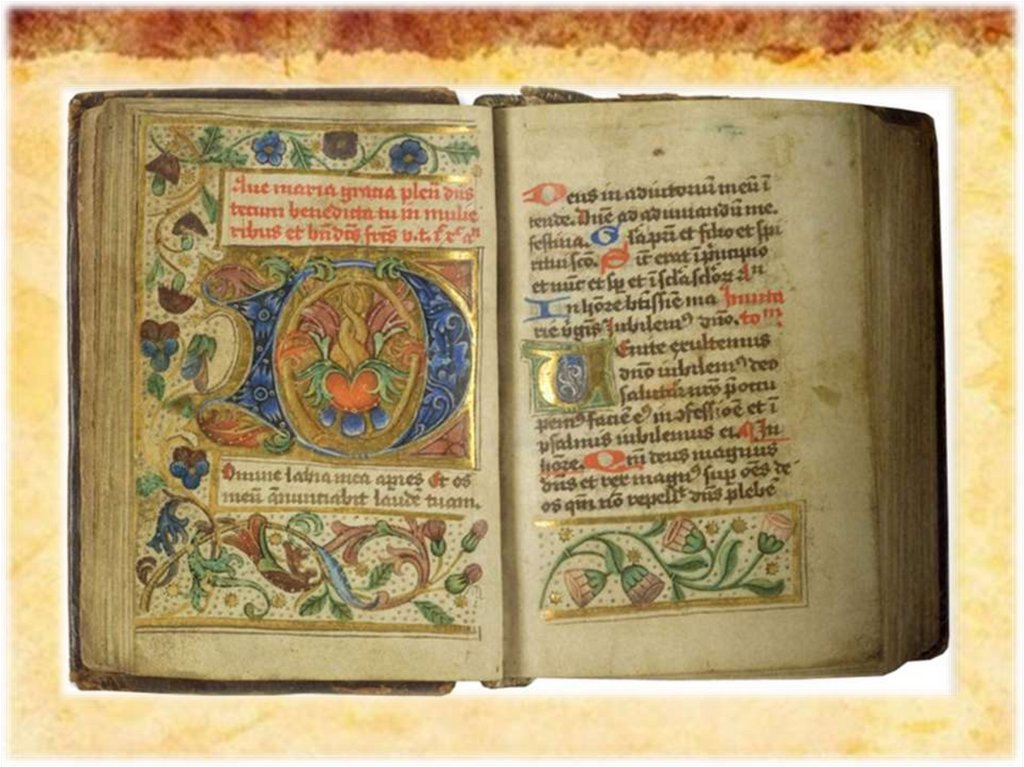 Aue maria gracia plen dns
tecum benedicta tu in mulie
ribus et bndcs frcs v. t. i
Domine labia mea apries Et os
meu anunciabit laude tuam.
Deus in adiutoriu meu i
tende. Dne ad adiuuandu me.
festina. G lia pri et filio et spi
ritui sco. S icut erat i principio
et nuc et sp et i scla sclor
In honore btissie ma Inuita
rie vgis Iubilem dno. to
Uenite exultemus
dno iubilem deo
salutari nro
pem facie e in et i
psalmus iubilemus ei. In
hore. Qm deus magnus
dns et rex magn sup oes de
os qm no repell dns plebe